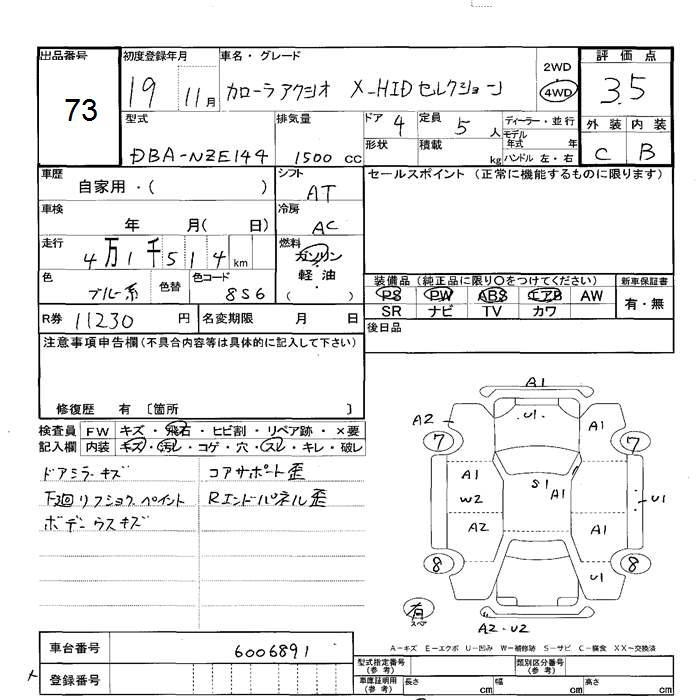 出品番号
73
初度登録年月
19 11月
車名・グレード
カローラアクシオ X_HIDセレクション
2WD
4WD
評価点
3.5
外装 内装
C B
型式
DBA-NZE144
排気量
1500 cc
ドア 4
定員 5 人
ディーラー・並行
モデル
年式 年
形状
積載 kg
ハンドル 左・右
車歴
自家用・( )
シフト
AT
セールスポイント(正常に機能するものに限ります)
車検
年 月( 日)
冷房
AC
走行
4万1千514km
燃料
ガソリン
軽・油
( )
色
ブルー系
色替
色コード
8S6
装備品(純正品に限り○をつけてください)
PS PW ABS エアB AW
SR ナビ TV カワ
新車保証書
有・無
R券 11230 円
名変期限 月 日
後日品
注意事項申告欄(不具合内容等は具体的に記入して下さい)
修復歴 有 〔箇所 〕
検査員
記入欄
FW キズ・飛石・ヒビ割・リペア跡・×要
内装 キズ・汚レ・コゲ・穴・スレ・キレ・破レ
ドアミラーキズ
コアサポート歪
下廻リフショク.ペイント
Rエンドパネル歪
ボデーウスキズ
A1
U1.
A2
A1
7
7
A1
S1
A1
A1
W2
U1
A2
A1
8
8
U1
有
スペア
A2-U2
車台番号
6006891
登録番号
A-キズ E-エクボ U-凹み W-補修跡 S-サビ C-腐食 XX-交換済
型式指定番号
(参考)
類別区分番号
(参考)
車庫証明用
(参考)
長さ cm
幅 cm
高さ cm